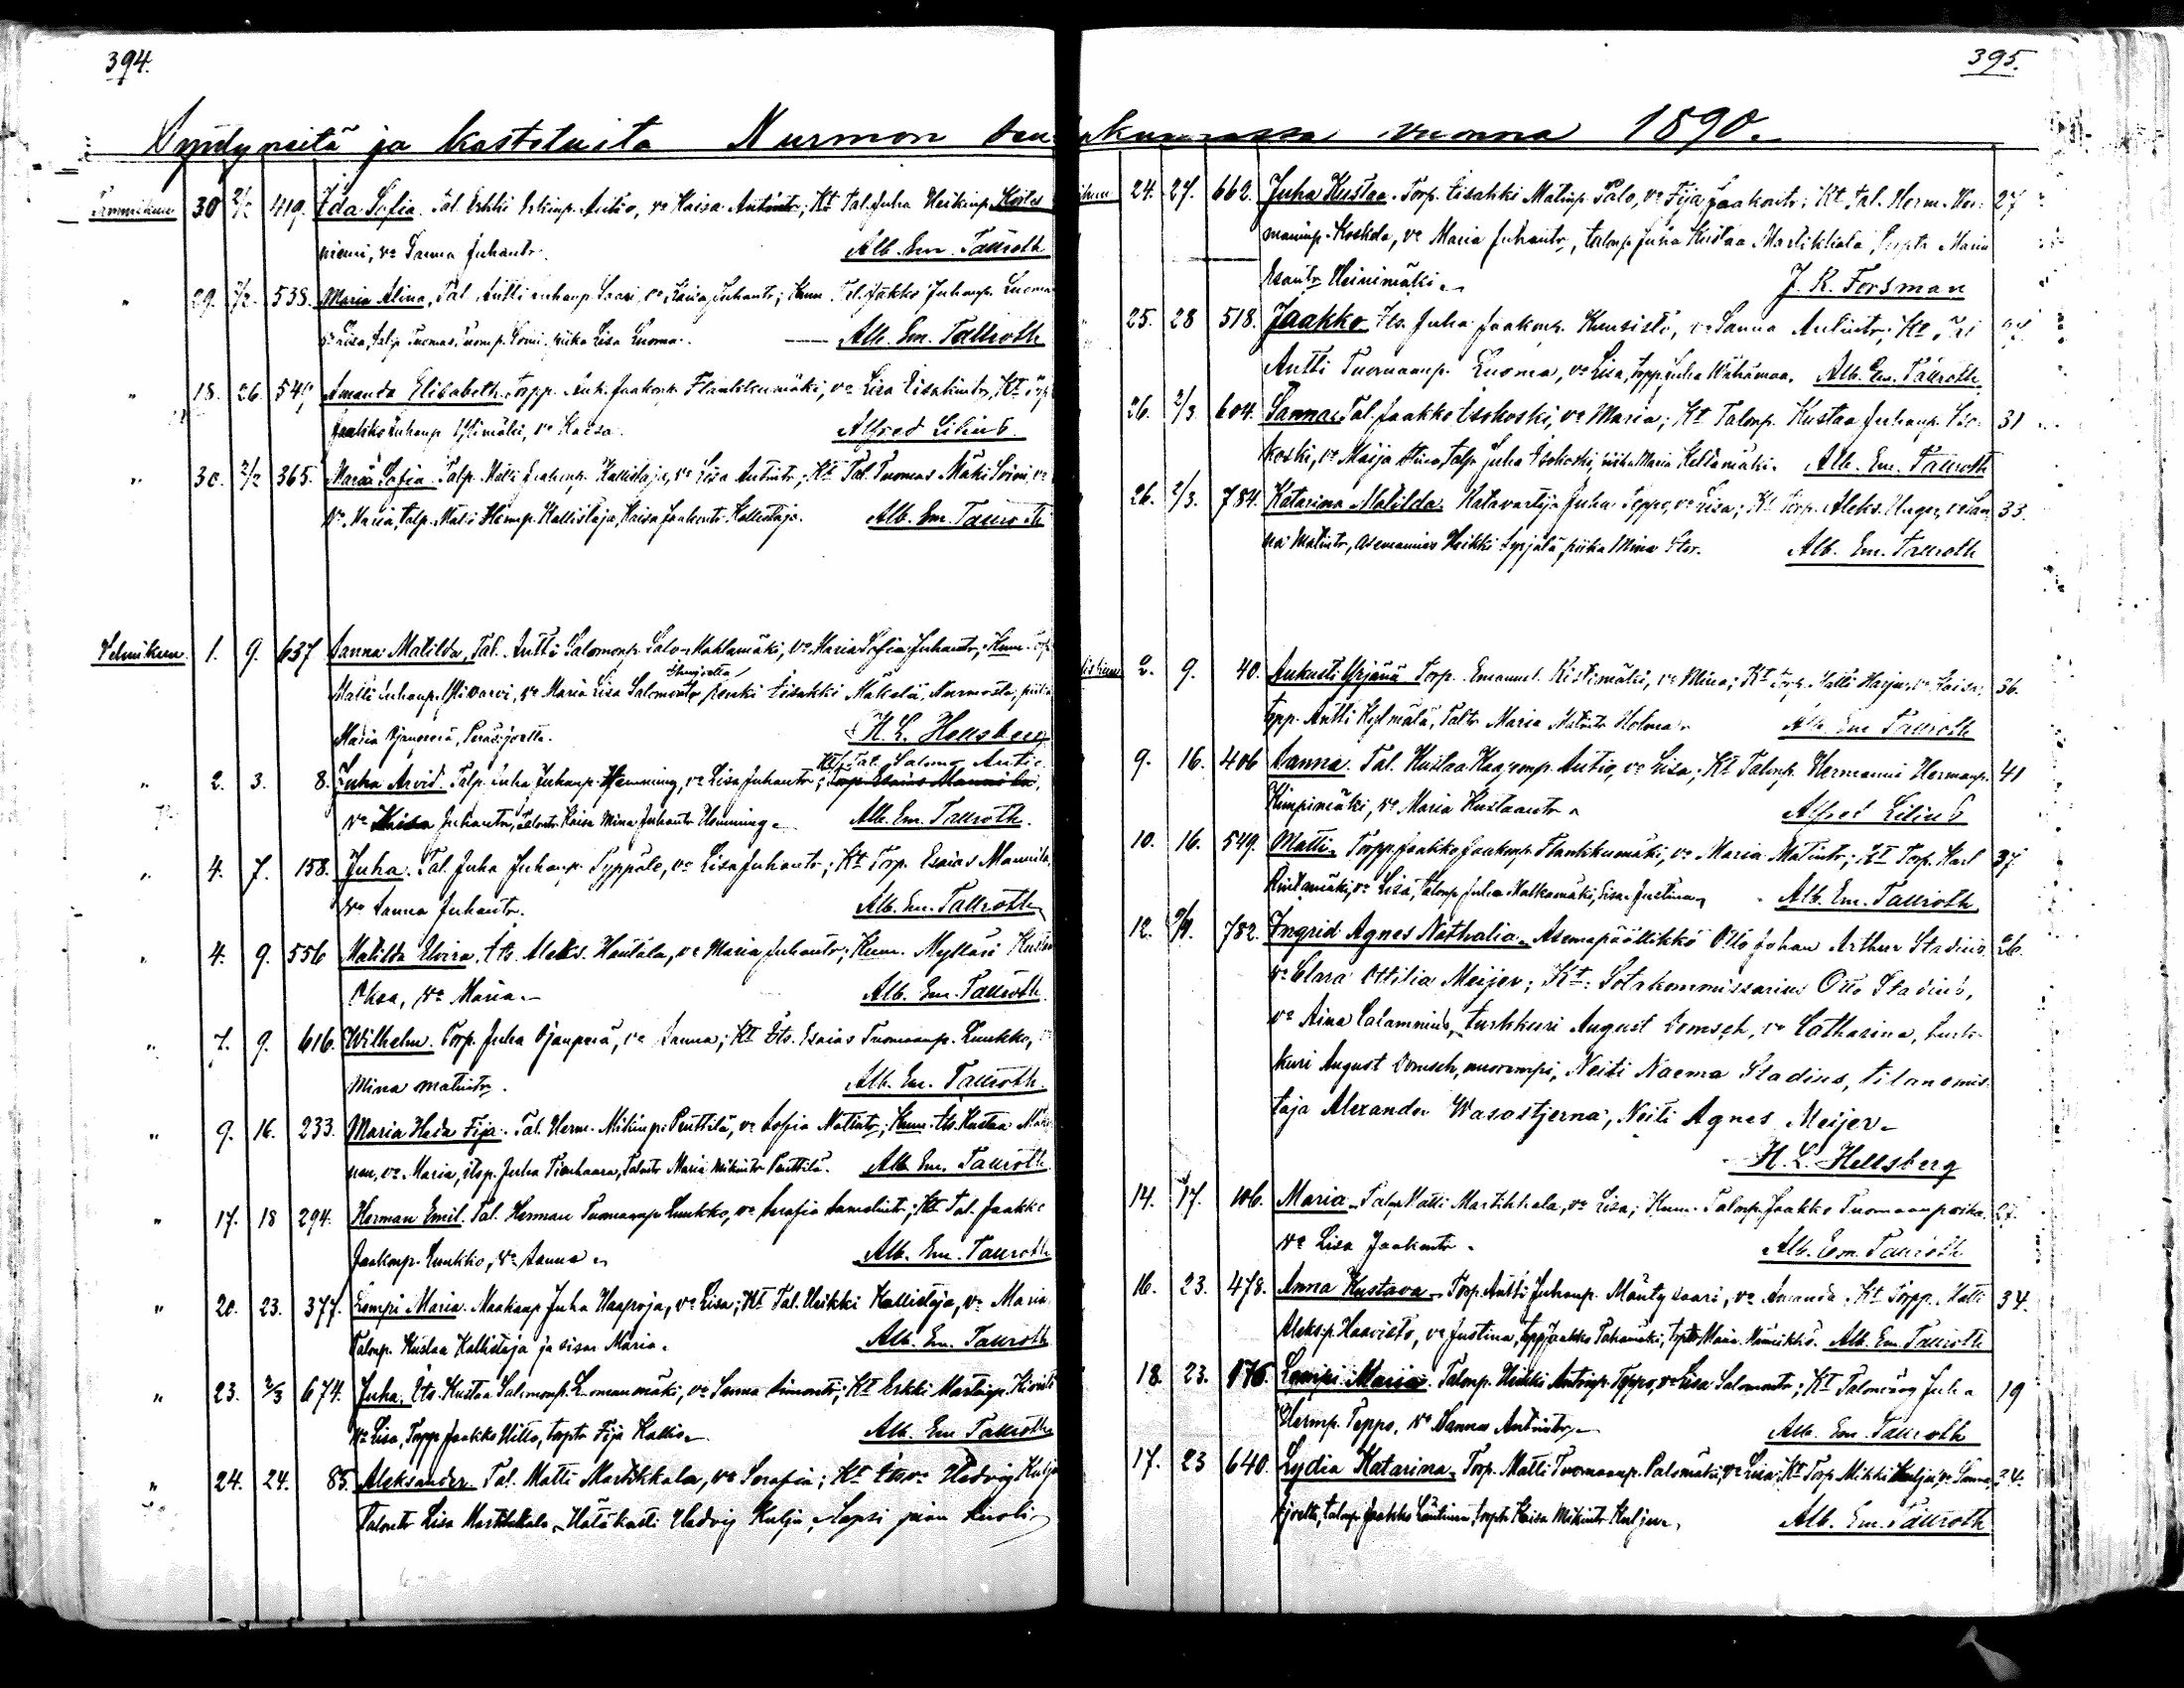 394.
Syndyneitä ja kastetuita Nurmon seu
Tammikuu 30 2/2 419. Ida Sofia. Tal. Erkki Erkinp. Autio, vo Kaisa Antintr; Kt Tal. Juha Heikinp. Kortes
niemi, vo Sanna Juhantr. Alb. Em. Tallroth
" 29. 2/2. 538. Maria Alina, Tal. Antti Juhanp. Saari, vo Kaisa Juhantr; Kum. Tal. Jaakko Juhanp. Luoma
vo Lisa, Talp. Tuomas Tuomp. Soini, piika Lisa Luoma. Alb. Em. Tallroth
" 18. 26. 549 Amanda Elisabeth. Torpp. Ant. Jaakonp. Flankkumäki, vo Lisa Eisakintr, Kt
Jaakko Juhanp. vo Kaisa. Alfred Lilius.
" 30. 2/2 365. Maria Sofia. Talp. Matti Kallistaja, vo Lisa Antintr; Kt Tal. Tuomas Mäki Soini, vo
Maria, Talp. Matti Hermp. Kallistaja, Kaisa Jaakontr Kallistaja. Alb. Em. Tallroth
Helmikuu. 1. 9. 637 Sanna Matilda, Tal. Antti Salomonp. Salo-Mahlamäki, vo Maria Sofia Juhantr; Kum.
Matti Juhanp. vo Maria Lisa Salomontr renki Eisakki Mäkelä, Nurmosta, piika
Maria Ojanperä, Peräsjoella. H. L. Hellsberg
Kt Tal. Salomo Autio
" 2. 3. 8. Juha Arvid. Talp. Juha Juhanp. Hemming, vo Lisa Juhantr; Torp. Esaias Mannila,
vo Kaisa Juhantr, Talontr Kaisa Mina Juhantr Hemming. Alb. Em. Tallroth.
" 4. 7. 158. Juha. Tal. Juha Juhanp. Typpölä, vo Lisa Juhantr; Kt Torp. Esaias Mannila,
vo Sanna Juhantr. Alb. Em. Tallroth
" 4. 9. 556 Matilda Elvira. Its. Aleks. Hautala, vo Maria Juhantr; Kum. Mylläri Kustaa
Oksa, vo Maria. Alb. Em. Tallroth.
" 7. 9. 616. Wilhelm. Torp. Juha Ojanperä, vo Sanna; Kt Its. Esaias Tuomaanp. Luukko,
Mina Matintr. Alb. Em. Tallroth.
" 9. 16. 233. Maria Hilda Fija. Tal. Herm. Mikinp. Penttilä, vo Sofia Matintr; Kum. Its. Kustaa
nen, vo Maria, itsp. Juha Tienhaara, Talontr Maria Mikintr Penttilä. Alb. Em. Tallroth.
" 17. 18 294. Herman Emil. Tal. Herman Tuomaanp. Luukko, vo Serafia Samelintr; Kt Tal. Jaakko
Jaakonp. Luukko, vo Sanna. Alb. Em. Tallroth
" 20. 23. 377. Lempi Maria. Maakaup Juha Haapoja, vo Lisa; Kt Tal. Heikki Kallistaja, vo Maria
Talonp. Kustaa Kallistaja ja sisar Maria. Alb. Em. Tallroth
" 23. 2/3 674. Juha. Its. Kustaa Salomonp. Luomanmäki, vo Sanna Simontr; Kt Erkki Kivistö
vo Lisa, Torpp Jaakko Hillo, torptr Fija Kallio. Alb. Em. Tallroth
" 24. 24. 85. Aleksander. Tal. Matti Martikkala, vo Serafia; Kt Itsvo Hedvig Kulju
Talontr Lisa Martikkala. Hätäkasti Hedvig Kulju, lapsi pian kuoli.
395.
akunnassa vuonna 1890.
24. 27. 662. Juha Kustaa. Torp. Eisakki Matinp. Palo, vo Fija Jaakontr; Kt Tal. Herm. Her- 27
maninp. Koskela, vo Maria Juhantr, talonp. Juha Kustaa Martikkala, torptr Maria
Esantr Heinimäki. J. R. Forsman
25. 28 518. Jaakko. Its. Juha Jaakonp. Kuusisto, vo Sanna Antintr; Kt Tal
Antti Tuomaanp. Luoma, vo Lisa, torpp. Juha Wähämaa. Alb. Em. Tallroth.
26. 2/3. 604. Sanna. Tal. Jaakko Isokoski, vo Maria; Kt Talonp. Kustaa Juhanp. Iso- 31
koski, vo Maija Stina, talp. Juha Isokoski, piika Maria Keltamäki. Alb. Em. Tallroth
26. 2/3. 784. Katarina Matilda. Ratavartija Juha Seppo, vo Lisa; Kt Torp. Aleks. Unger, vo San- 33.
na Matintr, asemamies Heikki Syrjälä, piika Mina Stor. Alb. Em. Tallroth
2. 9. 40. Aukusti Yrjänä Torp. Emanuel Ristimäki, vo Mina; Kt torp. Matti Harju, vo Kaisa, 36.
torpp. Antti Kylmälä, Taltr Maria Matintr Holma. Alb. Em. Tallroth
9. 16. 406 Sanna. Tal. Kustaa Kaaponp. Autio, vo Lisa; Kt Talonp. Hermanni Hermanp. 41
Kimpimäki, vo Maria Kustaantr. Alfred Lilius
10. 16. 549. Matti. Torpp. Jaakko Jaakonp. Flankkumäki, vo Maria Matintr; Kt Torp. Karl 37.
Rintamäki, vo Lisa, talonp. Juha Kalkamäki, sisar Justina. Alb. Em. Tallroth
12. 782. Ingrid Agnes Nathalia. Asemapäällikkö Otto Johan Arthur Stadius 26.
vo Clara Ottilia Meijer; Kt: Sotakommissarius Otto Stadius,
vo Aina Calamnius, turkkuri August Domsch, vo Catharina, turk-
kuri August Domsch, nuorempi, Neiti Naema Stadius, tilanomis-
taja Alexander Wasastjerna, Neiti Agnes Meijer.
H. L. Hellsberg
14. 17. 106. Maria. Talp. Matti Martikkala, vo Lisa; Kum. Talonp. Jaakko Tuomaanpoika 27.
vo Lisa Jaakontr. Alb. Em. Tallroth
16. 23. 478. Anna Kustava. Torp. Antti Juhanp. Mäntysaari, vo Amanda. Kt Torpp. Matti 34.
Aleksp. Haavisto, vo Justina, torpp Jaakko Pahamäki, torptr Maria Hännikkö. Alb. Em. Tallroth
18. 23. 176. Lempi Maria. Talonp. Heikki Antinp. Seppo, vo Lisa Salomontr; Kt Talonp Juha 19
Hermp. Seppo, vo Sanna Antintr. Alb. Em. Tallroth
17. 23 640. Lydia Katarina. Torp. Matti Tuomaanp. Palomäki, vo Lisa; Kt Torp. Mikki Kulju, vo Sanna 34.
talonp. Jaakko torptr Kaisa Mikintr Kulju. Alb. Em. Tallroth